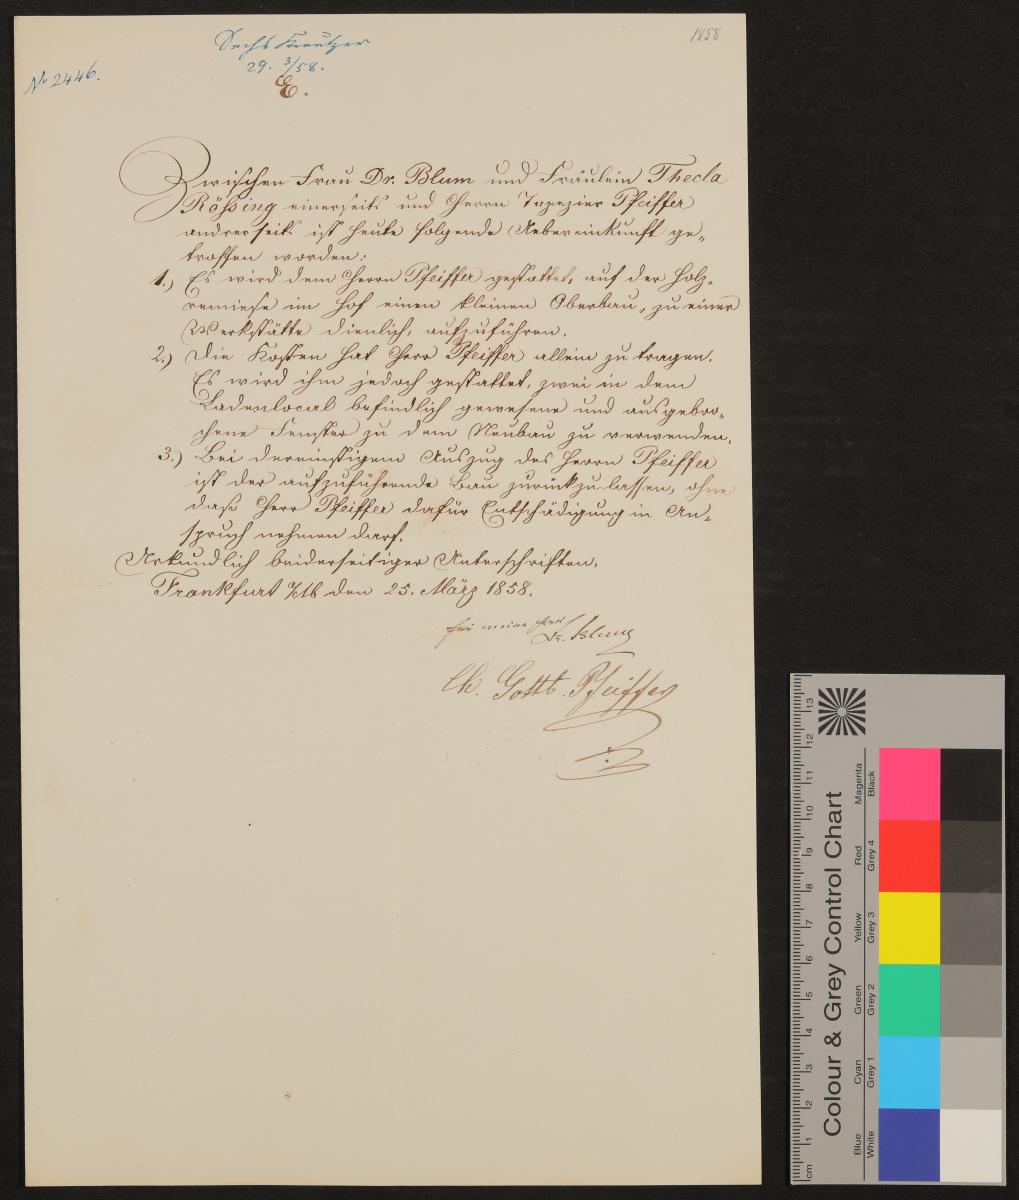 1858
Sechs Kreutzer
29. 3/58.
No 2446.
E.
Zwischen Frau Dr. Blum und Fräulein Thecla
Rößing einerseits und Herrn Tapezier Pfeiffer
andrerseits ist heute folgende Uebereinkunft ge-
troffen worden:
1.) Es wird dem Herrn Pfeiffer gestattet, auf der Holz-
remiese im Hof einen kleinen Oberbau, zu einer
Werkstätte dienlich, aufzuführen.
2.) Die Kosten hat Herr Pfeiffer allein zu tragen.
Es wird ihm jedoch gestattet, zwei in dem
Ladenlocal befindlich gewesene und ausgebro-
chene Fenster zu dem Neubau zu verwenden.
3.) Bei dereinstigem Auszug des Herrn Pfeiffer
ist der aufzuführende Bau zurückzulassen, ohne
daß Herr Pfeiffer dafür Entschädigung in An-
spruch nehmen darf.
Urkundlich beiderseitiger Unterschriften.
Frankfurt a/M den 25. März 1858.
für meine Frau
Dr. Blum
Ch. Gottl. Pfeiffer
Colour & Grey Control Chart
Blue Cyan Green Yellow Red Magenta
White Grey 1 Grey 2 Grey 3 Grey 4 Black
cm 1 2 3 4 5 6 7 8 9 10 11 12 13